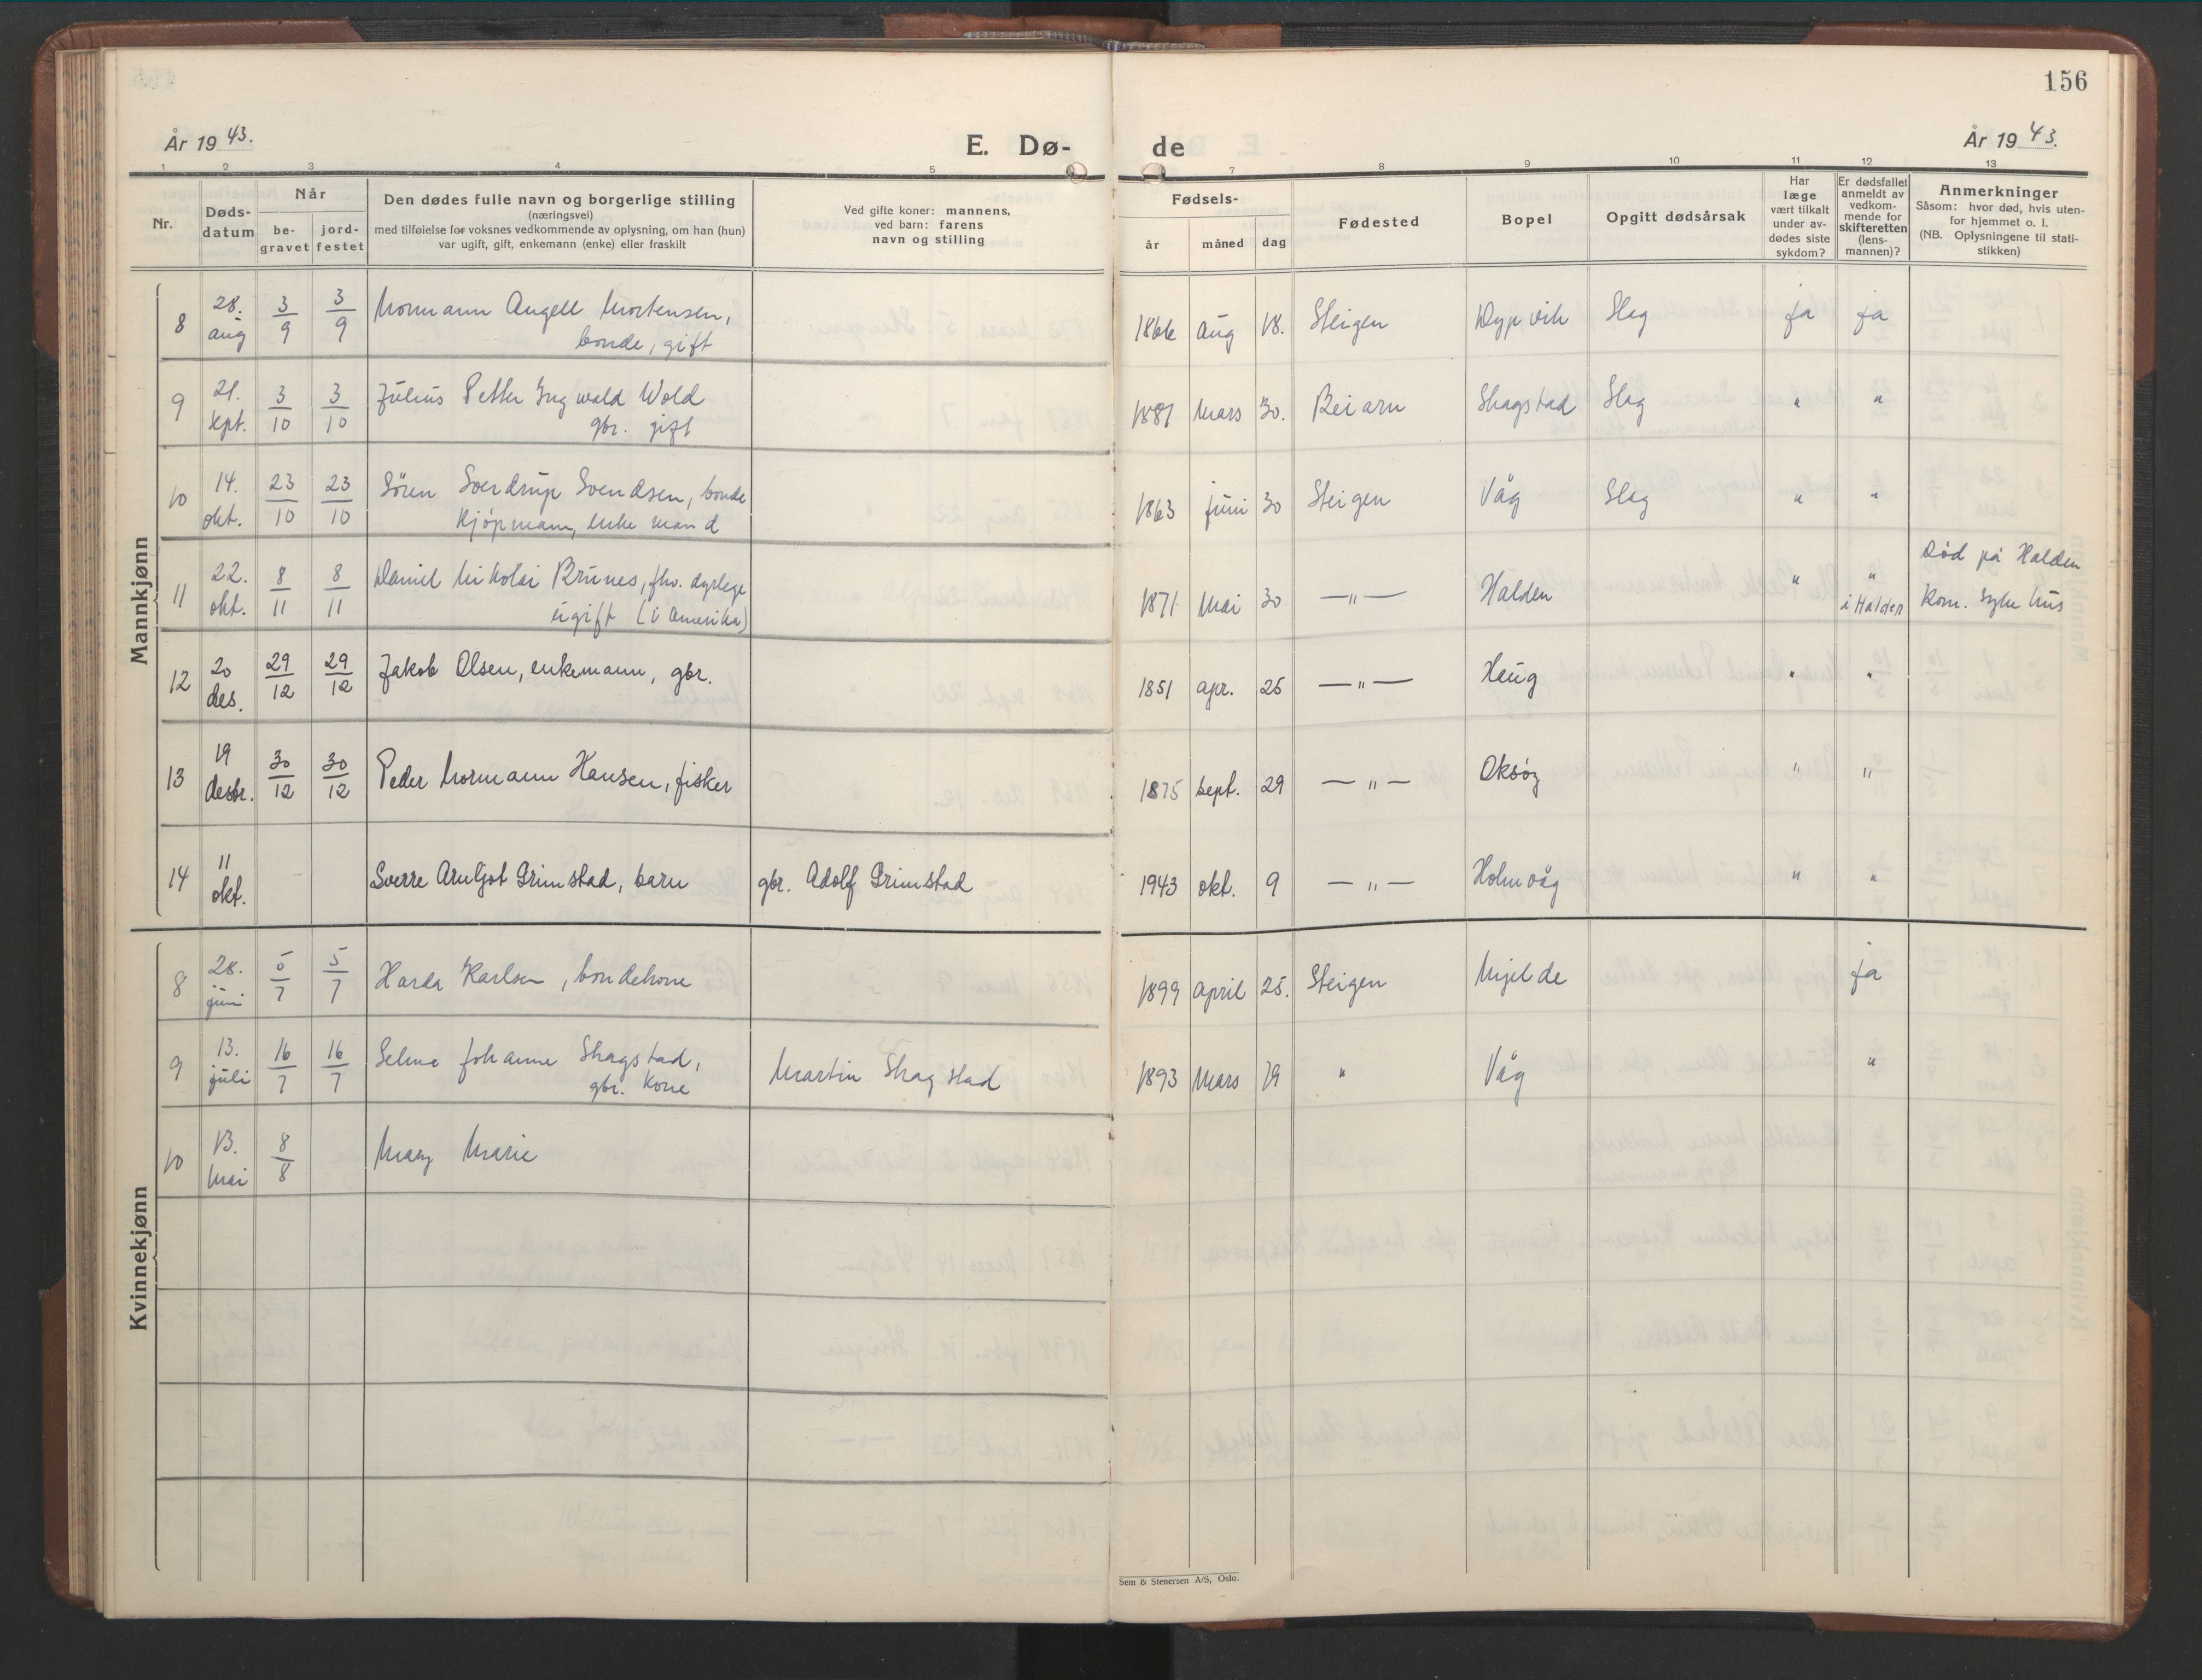 156
År 1943.
E. Dø-
de
År 1943.
1 2 3 4 5 7 8 9 10 11 12 13
Nr.
Døds-
datum
Når
be-
gravet
jord-
festet
Den dødes fulle navn og borgerlige stilling
(næringsvei)
med tilføielse for voksnes vedkommende av oplysning, om han (hun)
var ugift, gift, enkemann (enke) eller fraskilt
Ved gifte koner: mannens,
ved barn: farens
navn og stilling
Fødsels-
år måned dag
Fødested
Bopel
Opgitt dødsårsak
Har
læge
vært tilkalt
under av-
dødes siste
sykdom?
Er dødsfallet
anmeldt av
vedkom-
mende for
skifteretten
(lens-
mannen)?
Anmerkninger
Såsom: hvor død, hvis uten-
for hjemmet o. l.
(NB. Oplysningene til stati-
stikken)
Mannkjønn
8 28. aug 3/9 3/9 Normann Angell Mortensen, 1866 Aug 18. Steigen Dypvik Slag ja ja
bonde, gift
9 21. sept. 3/10 3/10 Julius Petter Ingwald Wold 1881 Mars 30. Beiarn Skagstad Slag " "
gbr. gift
10 14. okt. 23/10 23/10 Sören Sverdrup Svendsen, bonde 1863 juni 30 Steigen Våg Slag " "
kjøpmann, enkemand
11 22. okt. 8/11 8/11 Daniel Nikolai Brunes, fhv. dyrlege 1871 Mai 30 —"— Halden " " i Halden Död på Halden
ugift (i Amerika) Kom. sykehus
12 20 des. 29/12 29/12 Jakob Olsen, enkemann, gbr. 1851 apr. 25 —"— Haug " "
13 19 desbr. 30/12 30/12 Peder Normann Hansen, fisker 1875 sept. 29 —"— Oksøy " "
14 11 okt. Sverre Arnljot Grimstad, barn gbr. Adolf Grimstad 1943 okt. 9 —"— Holmvåg " "
Kvinnekjønn
8 28. juni 5/7 5/7 Karlsen, bondekone 1899 April 25. Steigen Mjelde ja
9 13. juli 16/7 16/7 Selma Johanne Skagstad, Martin Skagstad 1893 Mars 19 " Våg "
gbr. Kone
10 13. Mai 8/8 Mary Marie
Sem & Stenersen A/S, Oslo.